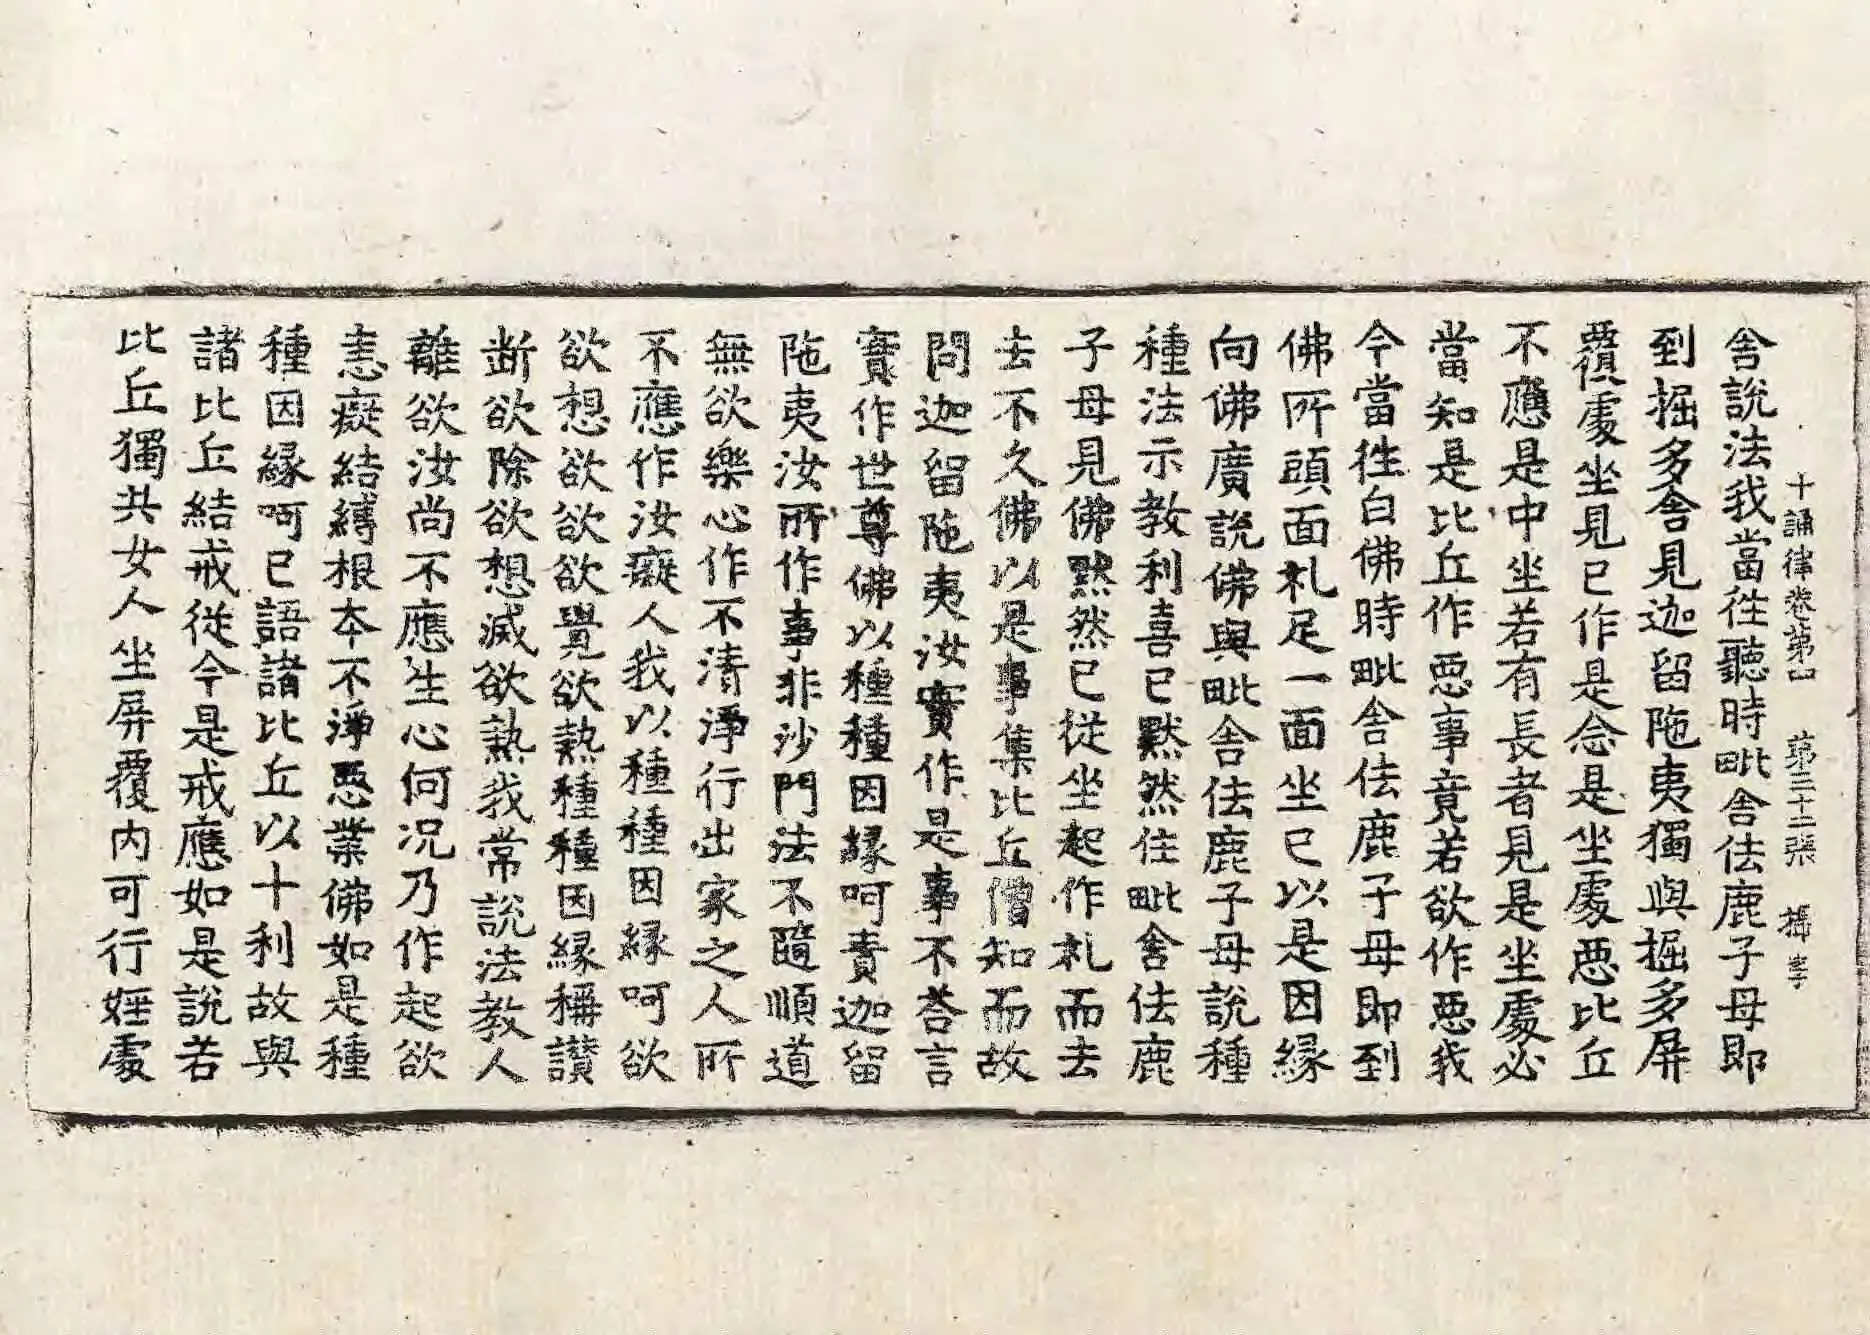 十誦律卷第四 第三十二張 搆字
舎說法我當徃聽時毗舎佉鹿子母即
到掘多舎見迦留陁夷獨與掘多屏
覆䖏坐見已作是念是坐䖏惡比丘
不應是中坐若有長者見是坐䖏必
當知是比丘作惡事竟若欲作惡我
今當徃白佛時毗舎佉鹿子母即到
佛所頭面礼足一面坐已以是因縁
向佛廣說佛與毗舎佉鹿子母說種
種法示教利喜已黙然住毗舎佉鹿
子母見佛黙然已從坐起作礼而去
去不久佛以是事集比丘僧知而故
問迦留陁夷汝實作是事不荅言
實作世尊佛以種種因縁呵責迦留
陁夷汝所作事非沙門法不隨順道
無欲樂心作不清淨行出家之人所
不應作汝癡人我以種種因縁呵欲
欲想欲欲欲覺欲熱種種因縁稱讃
断欲除欲想滅欲熱我常說法教人
離欲汝尚不應生心何況乃作起欲
恚癡結縛根夲不淨惡業佛如是種
種因縁呵已語諸比丘以十利故與
諸比丘結戒從今是戒應如是說若
比丘獨共女人坐屏覆内可行婬䖏